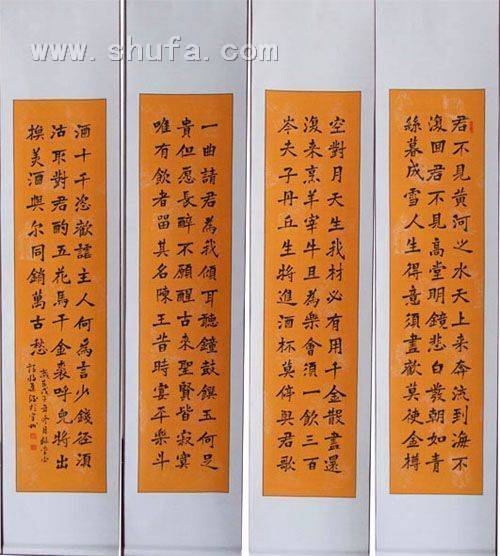 www.shufa.com
君不見黄河之水天上来奔流到海不
復回君不見高堂明鏡悲白發朝如青
絲暮成雪人生得意須盡歡莫使金樽
空對月天生我材必有用千金散盡還
復来烹羊宰牛且為樂會須一飲三百
岑夫子丹丘生將進酒杯莫停與君歌
一曲請君為我傾耳聽鐘鼓饌玉何足
貴但愿長醉不願醒古来聖賢皆寂寞
唯有飲者留其名陳王昔時宴平樂斗
酒十千恣歡謔主人何為言少錢徑須
沽取對君酌五花馬千金裘呼兒將出
換美酒與尔同銷萬古愁